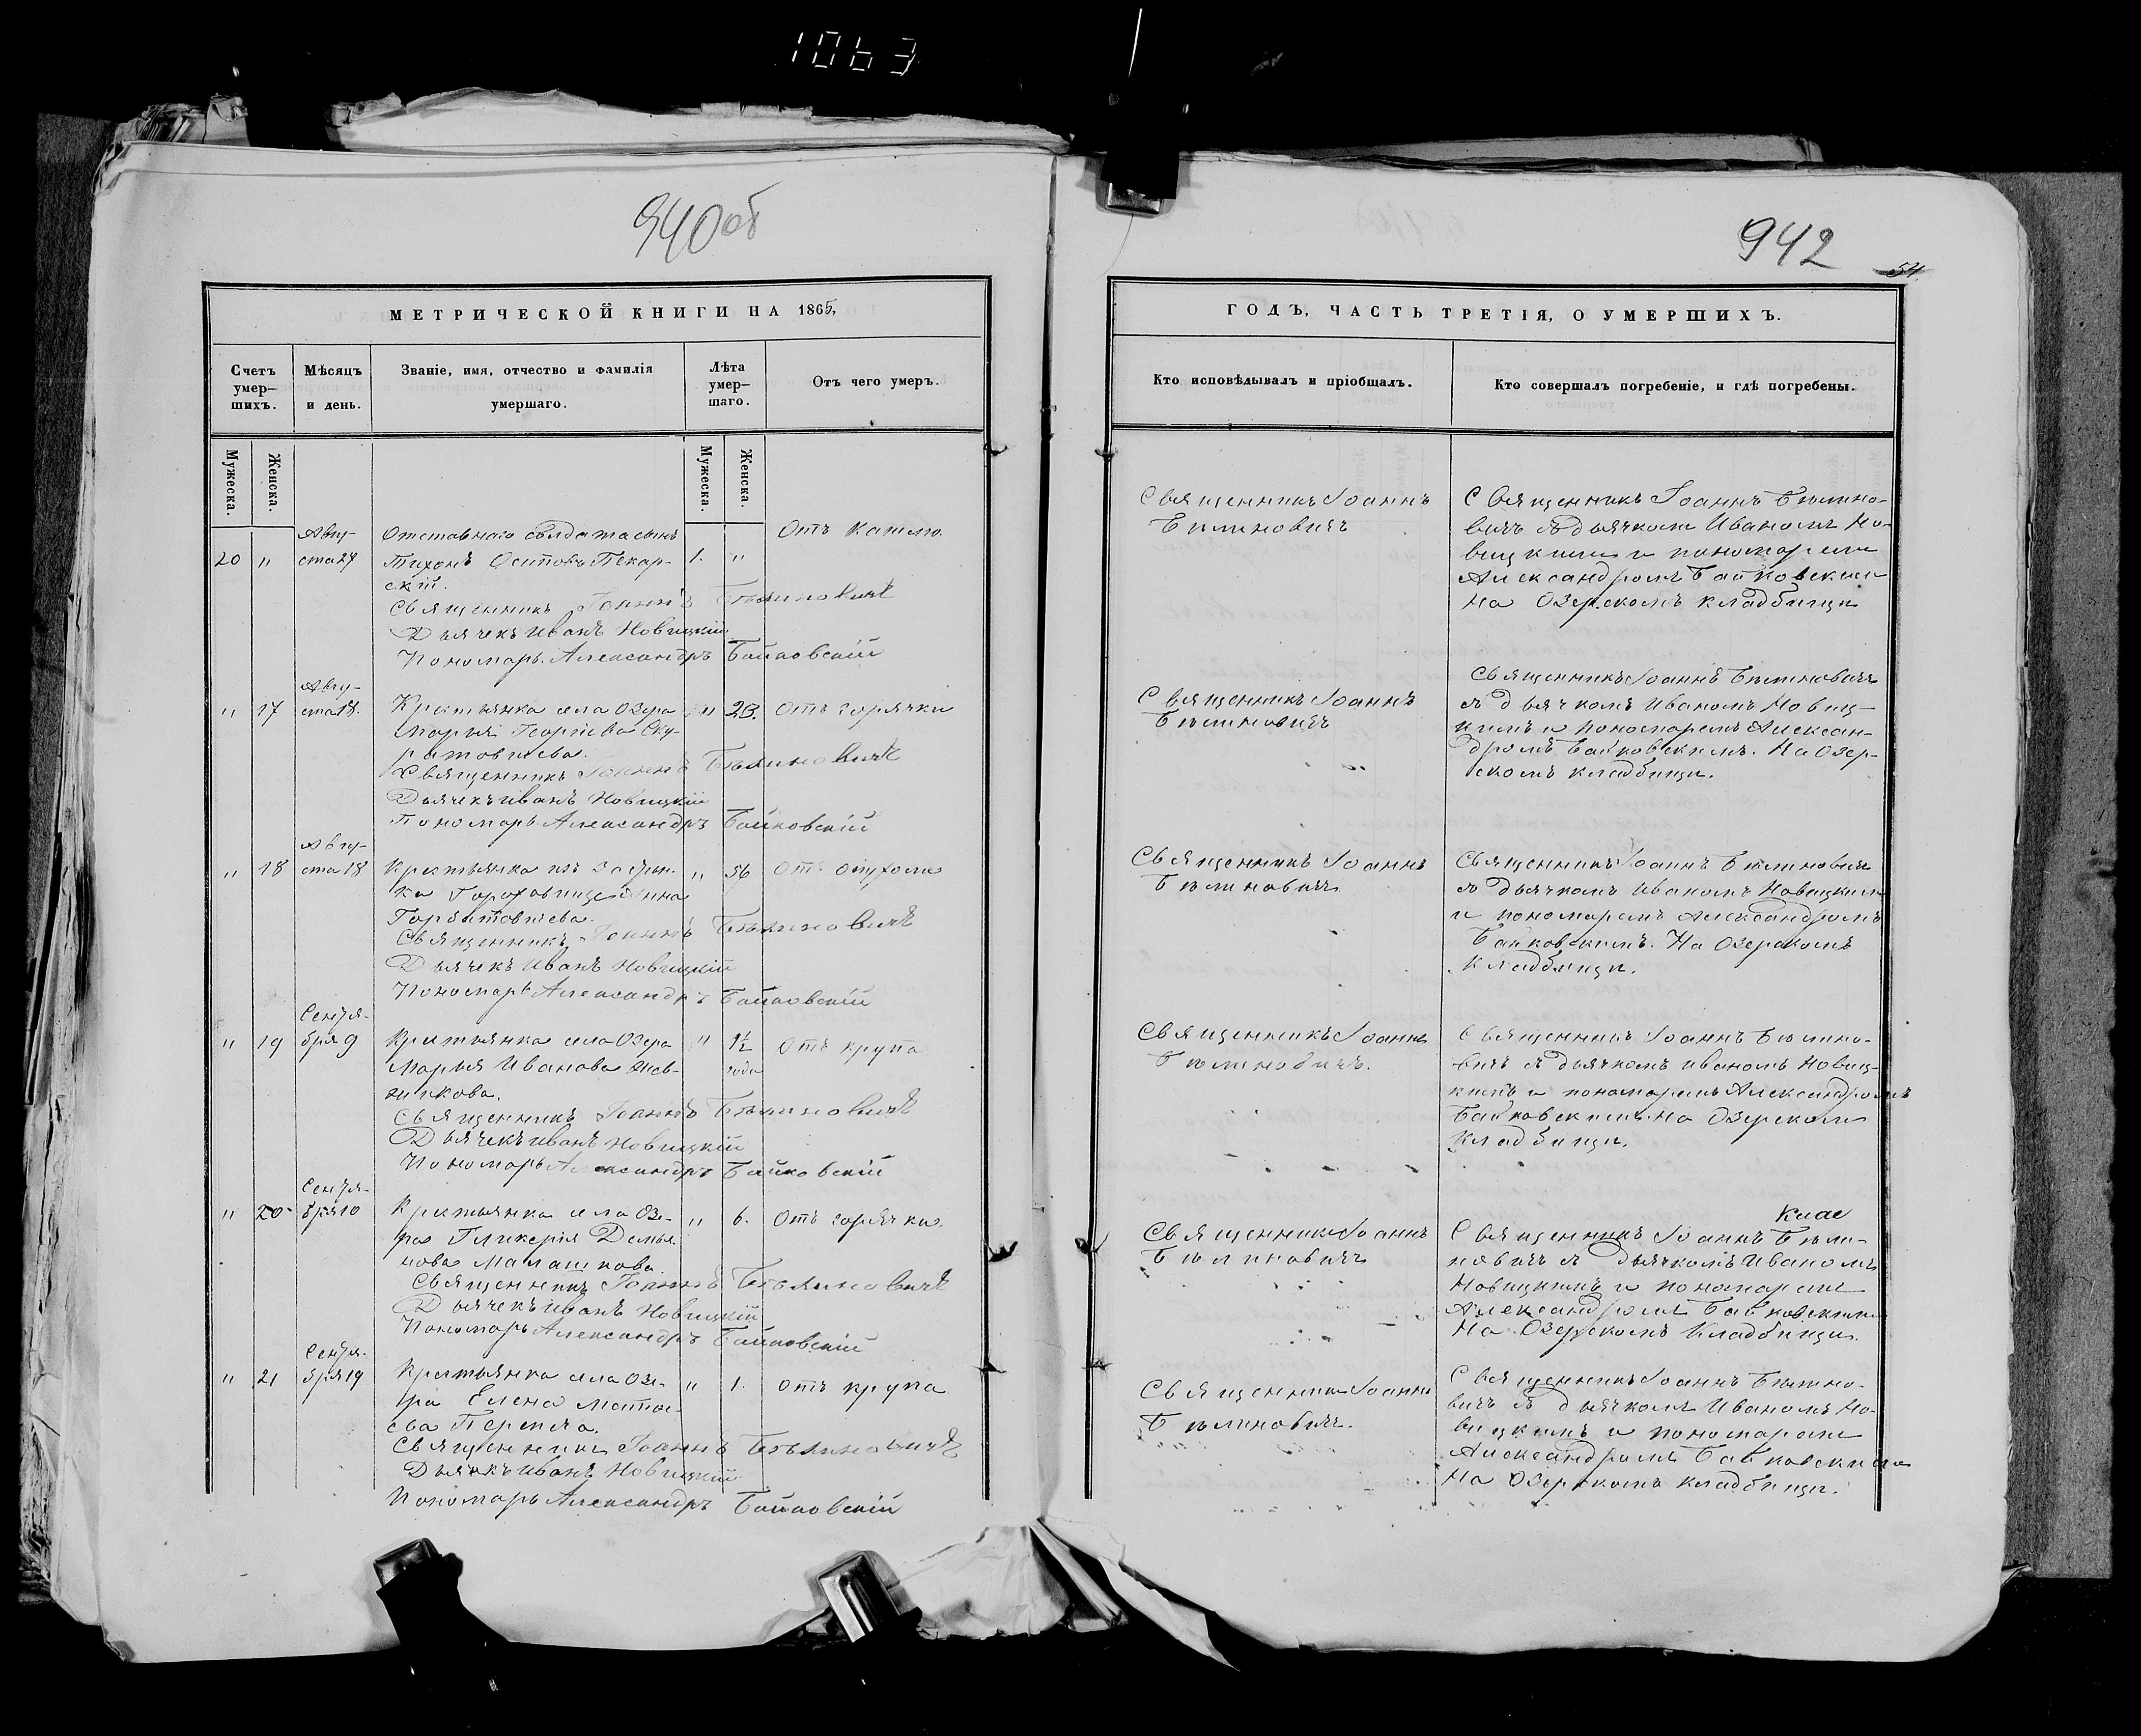 1063
940 об
МЕТРИЧЕСКОЙ КНИГИ НА 1865,
Счетъ умер-шихъ.
Мѣсяцъ и день.
Званіе, имя, отчество и фамилія умершаго.
Лѣта умер-шаго.
Отъ чего умеръ.
Мужеска.
Женска.
Мужеска.
Женска.
Авгу-
Отставнаго солдата сынъ
Отъ кашлю.
20 " ста 27 Тихонъ Осиповъ Пекар- 1. "
скій.
Священникъ Іоаннъ Бѣлиновичъ
Дьячекъ Иванъ Новицкій
Пономарь Александръ Байковскій
Авгу-
" 17 ста 18. Крестьянка села Озера " 23. Отъ горячки
Марья Георгіева Ску-
ратовичева.
Священникъ Іоаннъ Бѣлиновичъ
Дьячекъ Иванъ Новицкій
Пономарь Александръ Байковскій
Авгу-
" 18 ста 18 Крестьянка изъ " 56 Отъ опухоли
Анна
Горбатовичева.
Священникъ Іоаннъ Бѣлиновичъ
Дьячекъ Иванъ Новицкій
Пономарь Александръ Байковскій
Сентя-
" 19 бря 9 Крестьянка села Озера " 1½ Отъ крупа
Марья Иванова Шев-
года
чикова.
Священникъ Іоаннъ Бѣлиновичъ
Дьячекъ Иванъ Новицкій
Пономарь Александръ Байковскій
Сентя-
" 20 бря 10 Крестьянка села Озе- " 6. Отъ горячки.
ра Гликерія Демья-
нова Малашкова.
Священникъ Іоаннъ Бѣлиновичъ
Дьячекъ Иванъ Новицкій
Пономарь Александръ Байковскій
Сентя-
" 21 бря 19 Крестьянка села Озе- " 1. Отъ крупа
ра Елена Матѳе-
ева
Священникъ Іоаннъ Бѣлиновичъ
Дьячекъ Иванъ Новицкій
Пономарь Александръ Байковскій
942
54
ГОДЪ, ЧАСТЬ ТРЕТІЯ, О УМЕРШИХЪ.
Кто исповѣдывалъ и пріобщалъ.
Кто совершалъ погребеніе, и гдѣ погребены.
Священникъ Іоаннъ
Бѣлиновичъ
Священникъ Іоаннъ Бѣлино-
вичъ съ дьячкомъ Иваномъ Но-
вицкимъ и пономаремъ
Александромъ Байковскимъ
На Озерскомъ кладбищи
Священникъ Іоаннъ
Бѣлиновичъ
Священникъ Іоаннъ Бѣлиновичъ
съ дьячкомъ Иваномъ Новиц-
кимъ и пономаремъ Алексан-
дромъ Байковскимъ. На Озер-
скомъ кладбищи.
Священникъ Іоаннъ
Бѣлиновичъ
Священникъ Іоаннъ Бѣлиновичъ
съ дьячкомъ Иваномъ Новицкимъ
и пономаремъ Александромъ
Байковскимъ. На Озерскомъ
кладбищи.
Священникъ Іоаннъ
Бѣлиновичъ.
Священникъ Іоаннъ Бѣлино-
вичъ съ дьячкомъ Иваномъ Новиц-
кимъ и пономаремъ Александромъ
Байковскимъ. На Озерскомъ
кладбищи.
Священникъ Іоаннъ
Бѣлиновичъ
Священникъ Іоаннъ Бѣли-
новичъ съ дьячкомъ Иваномъ
Новицкимъ и пономаремъ
Александромъ Байковскимъ
На Озерскомъ кладбищи.
Священникъ Іоаннъ
Бѣлиновичъ.
Священникъ Іоаннъ Бѣлино-
вичъ съ дьячкомъ Иваномъ Но-
вицкимъ и пономаремъ
Александромъ Байковскимъ
На Озерскомъ кладбищи.